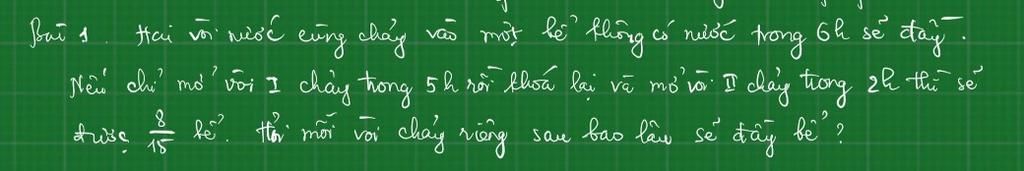 Bài 1. Hai vòi nước cùng chảy vào một bể không có nước trong 6h sẽ đầy.
Nếu chỉ mở vòi I chảy trong 5h rồi khoá lại và mở vòi II chảy trong 2h thì sẽ
được 8/15 bể. Hỏi mỗi vòi chảy riêng sau bao lâu sẽ đầy bể?